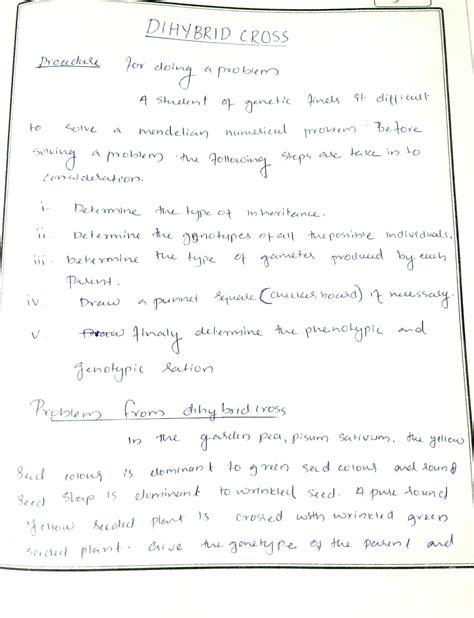 DIHYBRID CROSS
Procedure for doing a problem
A student of genetic finds it difficult
to solve a mendelian numerical problem. Before
solving a problem the following steps are take in to
consideration.
i. Determine the type of inheritance.
ii. Determine the genotypes of all the possible individuals.
iii. Determine the type of gametes produced by each
Parent.
iv. Draw a punnet square (checker board) if necessary.
v. finaly determine the phenotypic and
genotypic ration
Problem from dihybrid cross
In the garden pea, pisum sativum. the yellow
seed colour is dominant to green seed colour and round
seed shap is dominant to wrinkled seed. A pure round
yellow seeded plant is crossed with wrinkled green
seeded plant. Give the genotype of the parent and